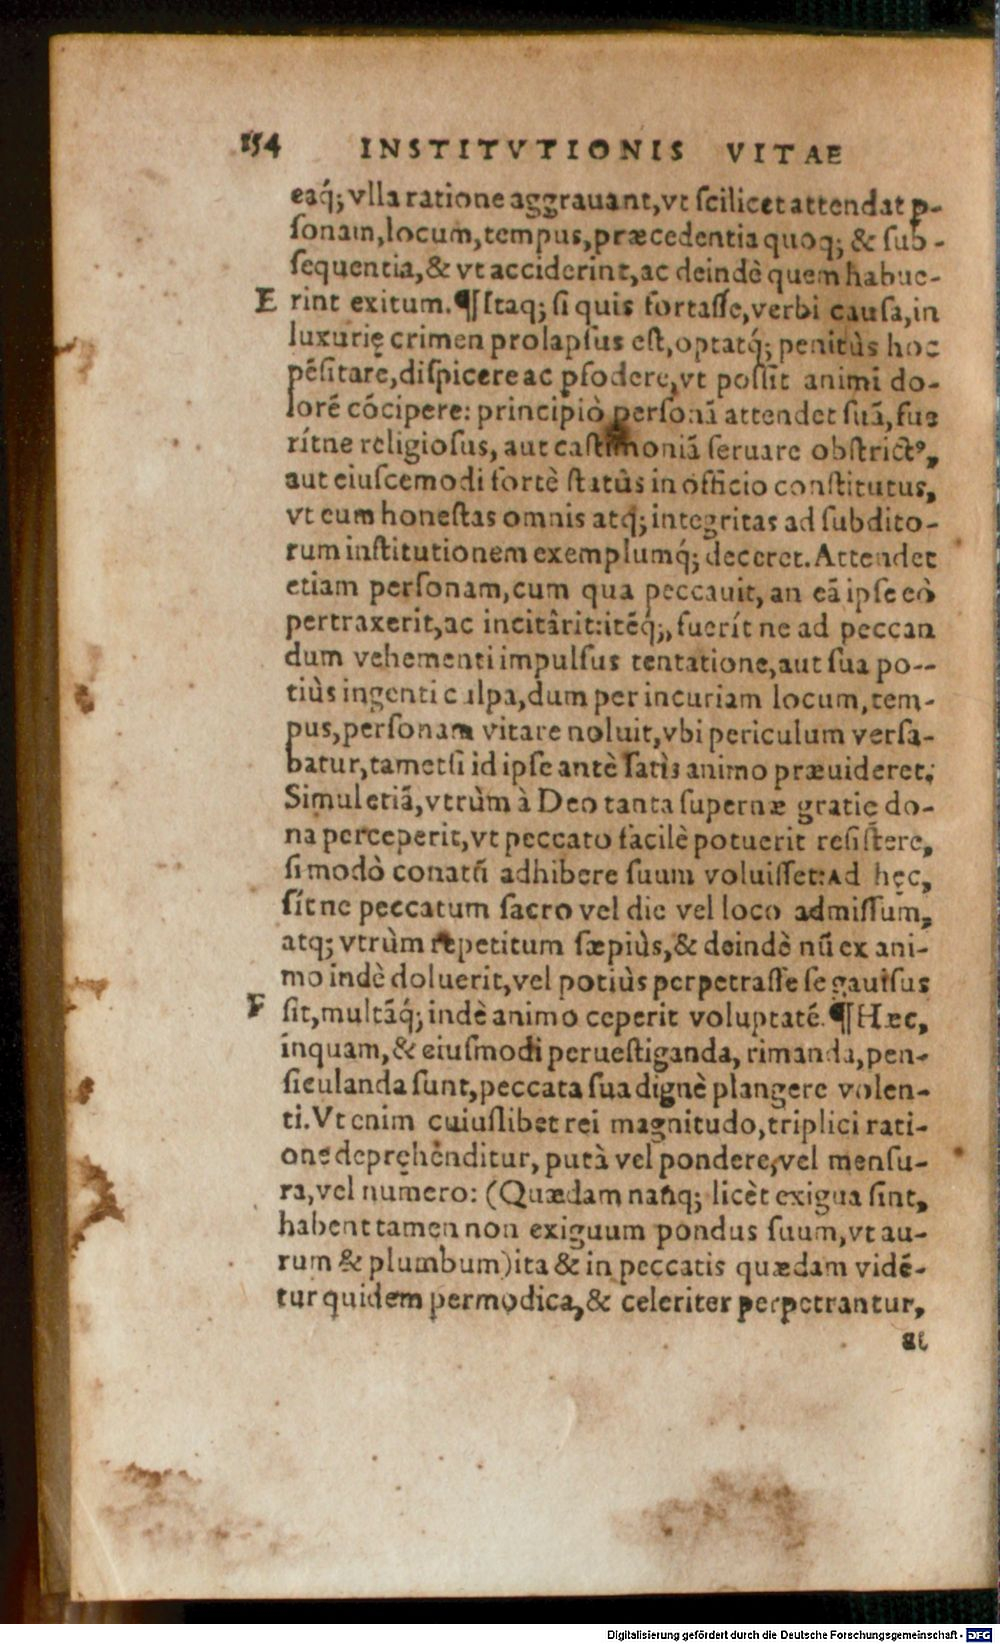 154 INSTITVTIONIS VITAE
eaq́; vlla ratione aggrauant, vt ſcilicet attendat ꝑ-
ſonam, locum, tempus, præcedentia quoq; & ſub-
ſequentia, & vt acciderint, ac deindè quem habue-
E rint exitum. ¶ Itaq; ſi quis fortaſſe, verbi cauſa, in
luxurię crimen prolapſus eſt, optatq́; penitùs hoc
pēſitare, diſpicere ac ꝑfodere, vt poſſit animi do-
lorē cōcipere: principiò perſonā attendet ſuā, fue
rítne religioſus, aut caſtimoniā ſeruare obſtrictꝰ,
aut eiuſcemodi fortè ſtatùs in officio conſtitutus,
vt eum honeſtas omnis atq́; integritas ad ſubdito-
rum inſtitutionem exemplumq́; deceret. Attendet
etiam perſonam, cum qua peccauit, an eā ipſe eò
pertraxerit, ac incitârit: itēq́;, fuerít ne ad peccan
dum vehementi impulſus tentatione, aut ſua po--
tiùs ingenti culpa, dum per incuriam locum, tem-
pus, perſonam vitare noluit, vbi periculum verſa-
batur, tametſi id ipſe antè ſatìs animo præuideret.
Simul etiā, vtrùm à Deo tanta ſupernæ gratię do-
na perceperit, vt peccato facilè potuerit reſiſtere,
ſi modò conatū adhibere ſuum voluiſſet: Ad hęc,
ſítne peccatum ſacro vel die vel loco admiſſum,
atq; vtrùm repetitum ſæpiùs, & deindè nū ex ani-
mo indè doluerit, vel potiùs perpetraſſe ſe gauiſus
F ſit, multāq́; indè animo ceperit voluptatē. ¶ Hæc,
inquam, & eiuſmodi perueſtiganda, rimanda, pen-
ſiculanda ſunt, peccata ſua dignè plangere volen-
ti. Vt enim cuiuſlibet rei magnitudo, triplici rati-
one deprehenditur, putà vel pondere, vel menſu-
ra, vel numero: (Quædam nanq; licèt exigua ſint,
habent tamen non exiguum pondus ſuum, vt au-
rum & plumbum) ita & in peccatis quædam vidē-
tur quidem permodica, & celeriter perpetrantur,
at
Digitalisierung gefördert durch die Deutsche Forschungsgemeinschaft - DFG